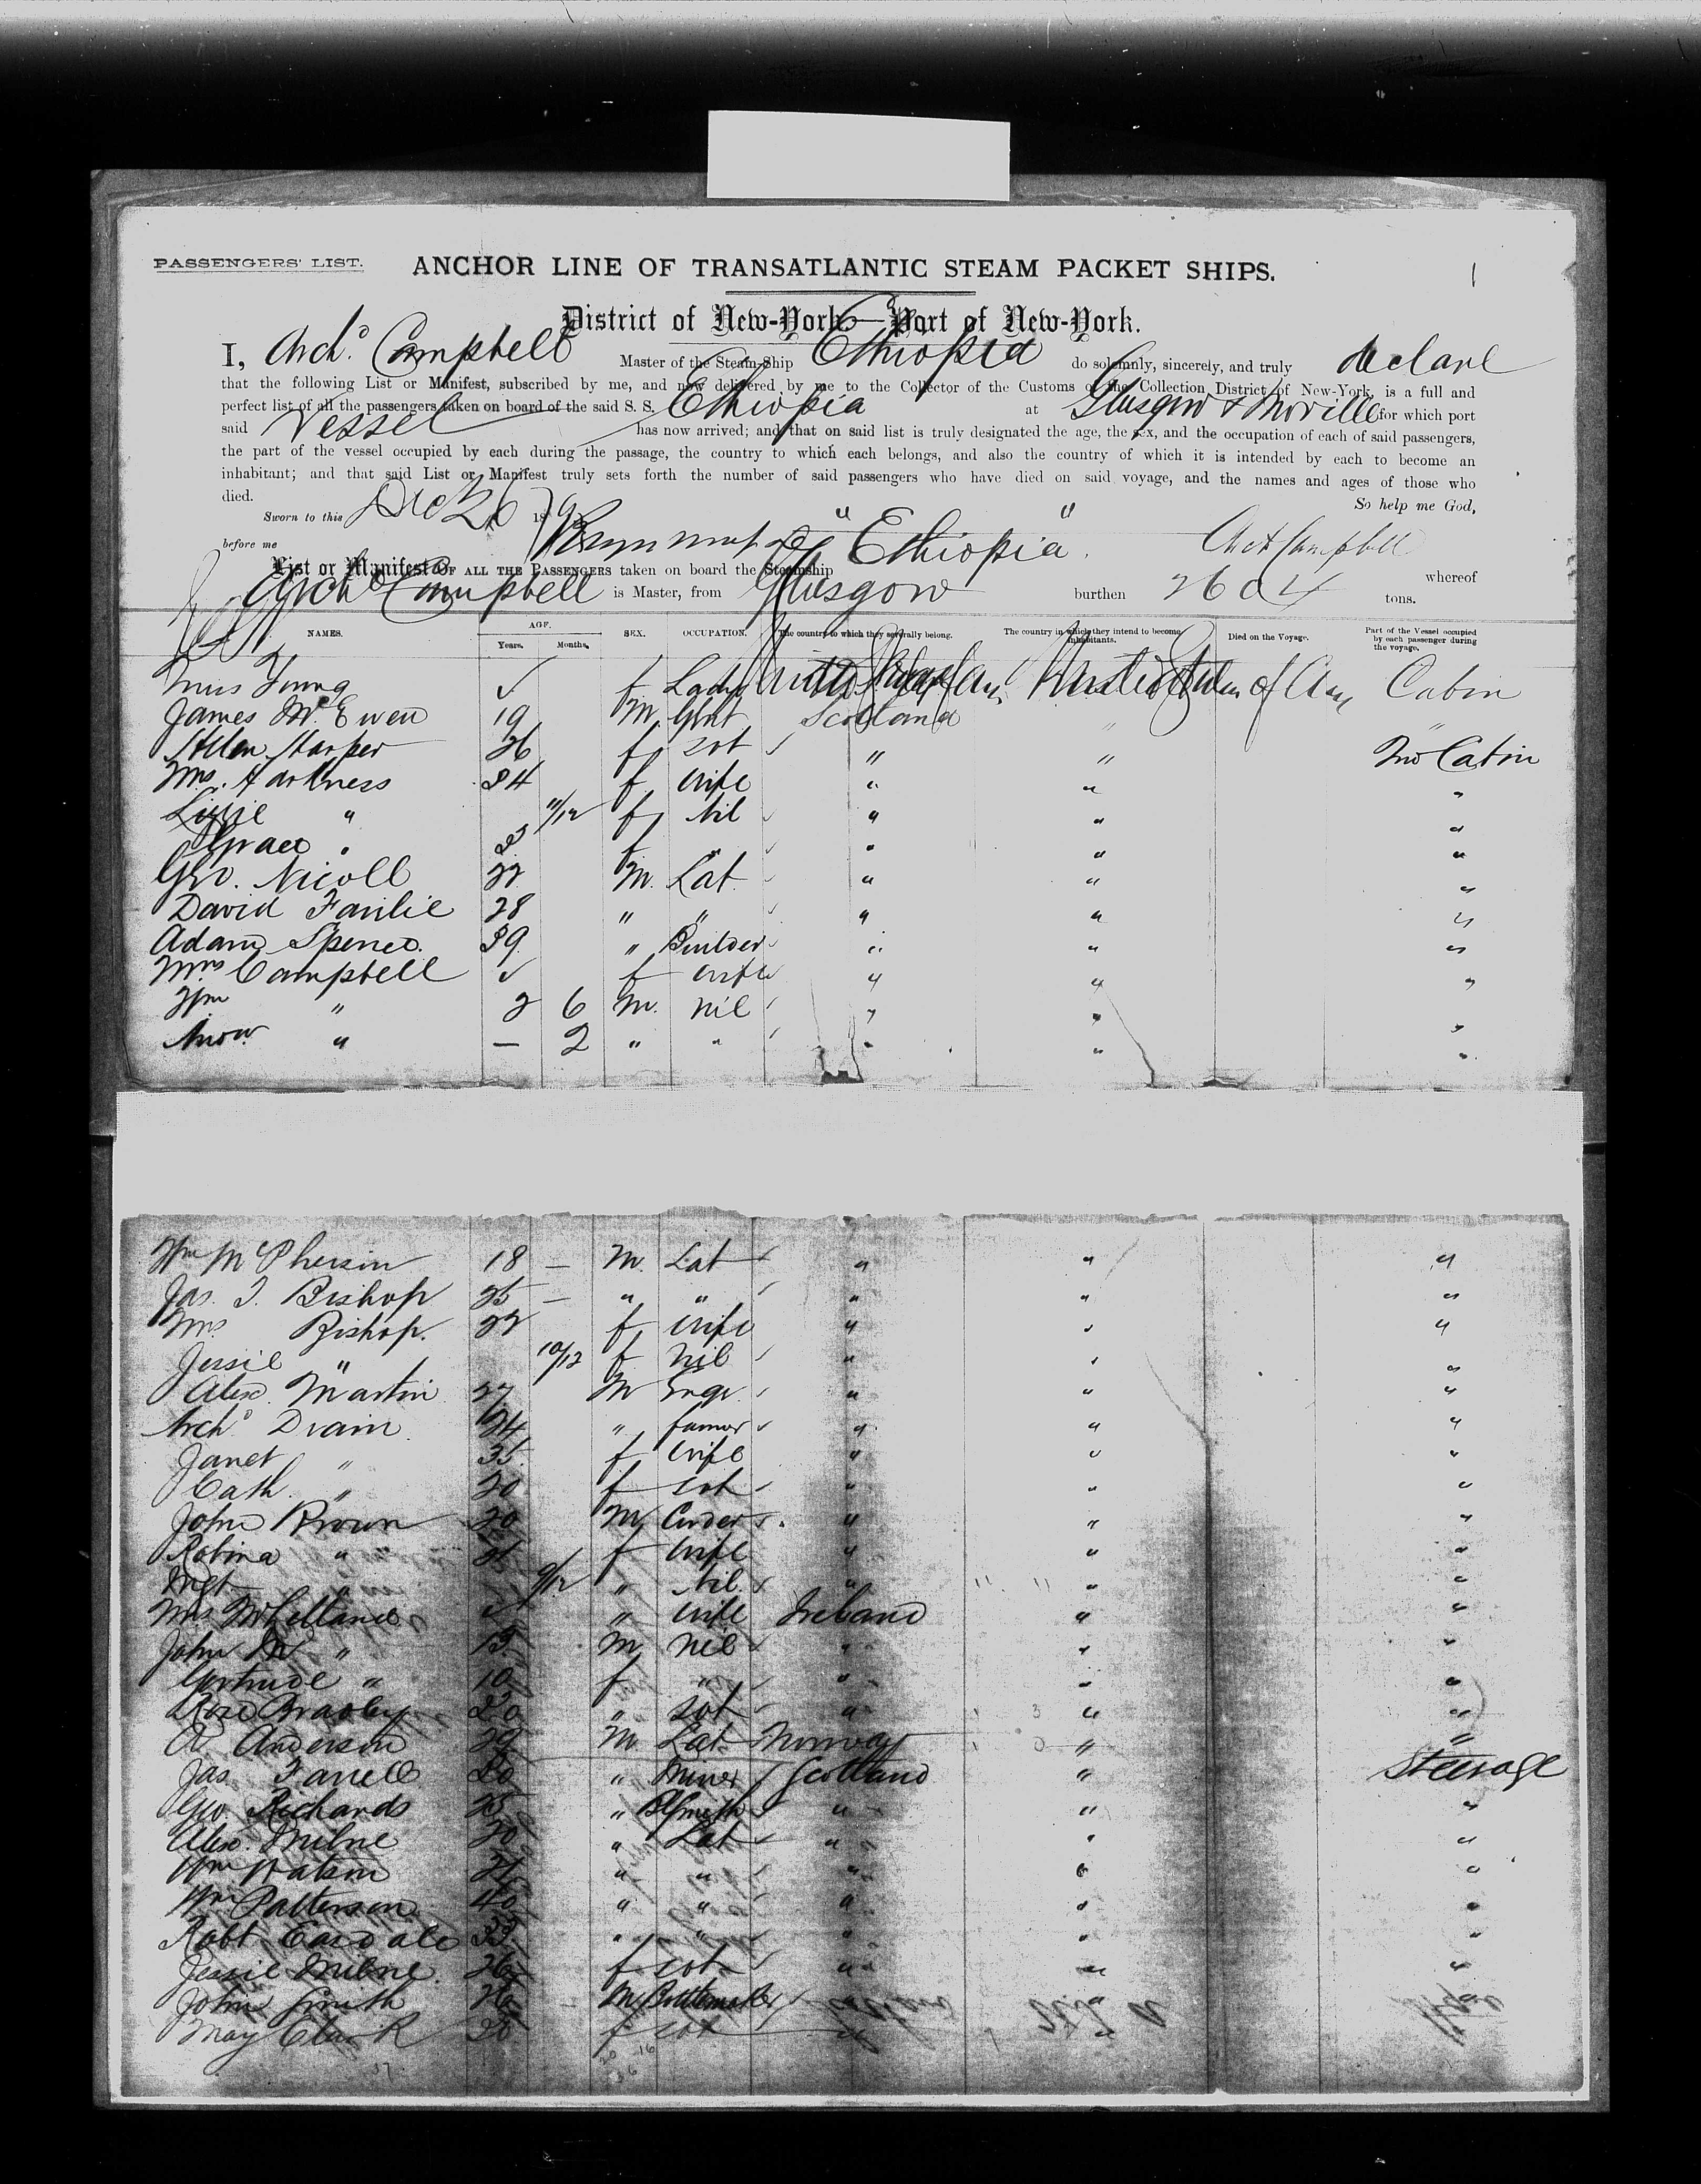 PASSENGERS' LIST. ANCHOR LINE OF TRANSATLANTIC STEAM PACKET SHIPS. 1
District of New-York—Port of New-York.
I, Archd. Campbell Master of the Steam-Ship Ethiopia do solemnly, sincerely, and truly declare
that the following List or Manifest, subscribed by me, and now delivered by me to the Collector of the Customs of the Collection District of New-York, is a full and
perfect list of all the passengers taken on board of the said S. S. Ethiopia at Glasgow & Moville for which port
said Vessel has now arrived; and that on said list is truly designated the age, the sex, and the occupation of each of said passengers,
the part of the vessel occupied by each during the passage, the country to which each belongs, and also the country of which it is intended by each to become an
inhabitant; and that said List or Manifest truly sets forth the number of said passengers who have died on said voyage, and the names and ages of those who
died. So help me God,
Sworn to this Dec 26 1879
before me Arch Campbell
List or Manifest OF ALL THE PASSENGERS taken on board the Steamship "Ethiopia" whereof
Archd Campbell is Master, from Glasgow burthen 2604 tons.
NAMES. AGE. Years. Months. SEX. OCCUPATION. The country to which they severally belong. The country in which they intend to become inhabitants. Died on the Voyage. Part of the Vessel occupied by each passenger during the voyage.
Miss Young ✓ f Lady Cabin
James McEwen 19 M. Scotland "
Harper 26 f " " Cabin
Mrs. Harkness 24 f wife " " "
Lizzie " 11/12 f Nil " " "
Grace " f " " " "
Geo. Nicoll 22 M. Lab " " "
David Fairlie 28 " " " " "
Adam Spence. 39. " Builder " " "
Mrs Campbell ✓ f wife " " "
Wm " 2 6 M. nil " " "
Andw " — 2 " " " " "
Wm McPherson 18 — M. Lab " " "
Jas. T. Bishop 25 — " " " " "
Mrs Bishop. 22 f wife " " "
Jessie " 10/12 f nil " " "
Alex. Martin 27 M Engr. " " "
Archd Drain 24 " farmer " " "
Janet " 35 f wife " " "
Cath. " 20 f " " "
John Brown 20 M " " "
Robina " f wife " " "
Mgt " 9/12 " Nil " " "
Mrs McClelland ✓ " wife Ireland " "
John M " 13 M nil " " "
Gertrude " 10 f " " " "
Rose Bradley 20 " " " "
A. Anderson 29 M Lab Norway " "
Jas Farrell 20 " Miner Scotland " Steerage
Geo. Richards 25 " Blsmith " " "
Alex. Milne 20 " Lab " " "
Wm Watson 21 " " " " "
Wm Patterson 40 " " " " "
Robt 33 " " " " "
Jessie Milne. 26 f " " "
John Smith 26 M "
May Clark f " "